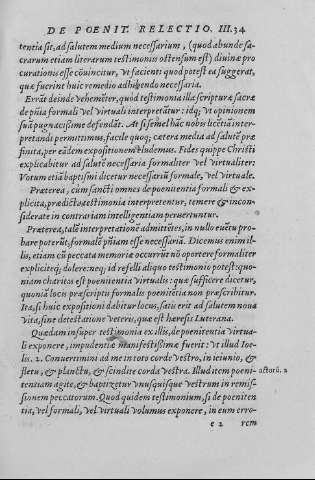 DE POENIT. RELECTIO. III. 34
tentia sit, ad salutem medium necessarium, (quod abunde sa-
crarum etiam literarum testimonio ostensum est) diuinæ pro
curationis esse cõuincitur, vt facienti quod potest ea suggerat,
quæ fuerint huic remedio adhibendo necessaria.
Errãt deinde vehemẽter, quòd testimonia illa scripturæ sacræ
de pñia formali vel virtuali interpretãtur: idq; vt opinionem
suã pugnacissime defendãt. At si semel hãc nobis licẽtiã inter-
pretandi permittimus, facile quoq; cætera media ad salutẽ præ
finita, per eãdem expositionem eludemus. Fides quippe Christi
explicabitur ad salutẽ necessaria formaliter vel virtualiter:
Votum etiã baptismi dicetur necessariũ formale, vel virtuale.
Præterea, cùm sancti omnes de poenitentia formali & ex-
plicita, prædicta testimonia interpretentur, temere & incon-
siderate in contrariam intelligentiam peruertuntur.
Præterea, talẽ interpretationẽ admittẽtes, in nullo euẽtu pro-
bare poterũt, formalẽ pñiam esse necessariã. Dicemus enim il-
lis, etiam cũ peccata memoria occurrũt nõ oportere formaliter
explicitéq; dolere: neq; id refelli aliquo testimonio potest: quo-
niam charitas est poenitentia virtualis: quæ sufficere dicetur,
quoniã locis præscriptis formalis poenitẽtia non præscribitur.
Ita, si huic expositioni dabitur locus, satis erit ad salutem noua
vita, sine detestatione veteris, quæ est hæresis Luterana.
Quædam insuper testimonia ex illis, de poenitentia virtua-
li exponere, impudentiæ manifestissimæ fuerit: vt illud Ioe-
lis. 2. Conuertimini ad me in toto corde vestro, in ieiunio, &
fletu, & planctu, & scindite corda vestra. Illud itẽ poeni- actorũ. 2
tentiam agite, & baptizetur vnusquisque vestrum in remis-
sionem peccatorum. Quod quidem testimonium, si de poeniten
tia, vel formali, vel virtuali volumus exponere, in eum erro-
e 2 rem